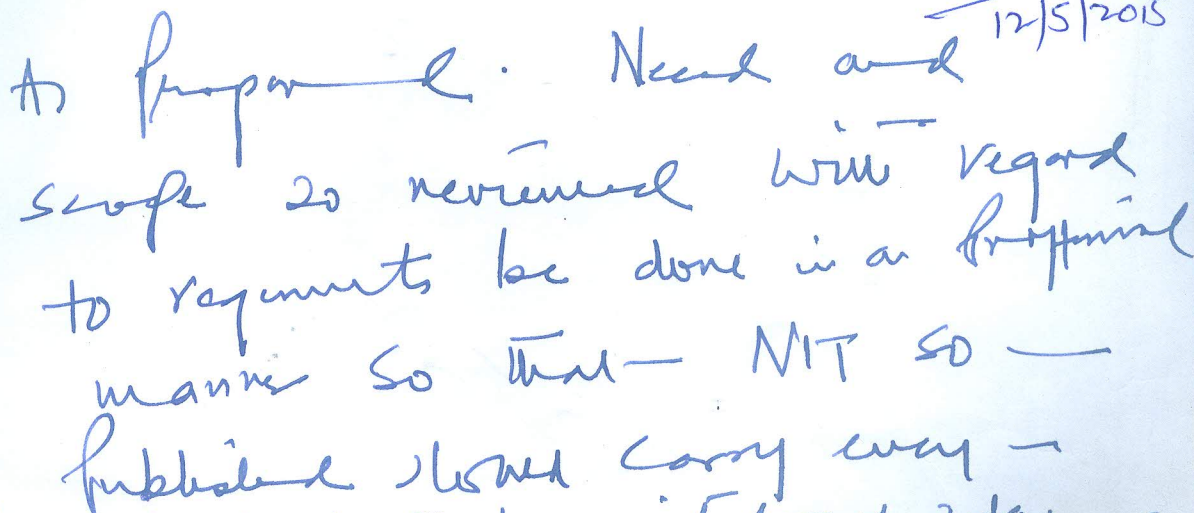 12/5/2015
As Proposed. Need and
scope so reviewed with regard
to requirements be done in a Professional
manner so that NIT so
published should carry every